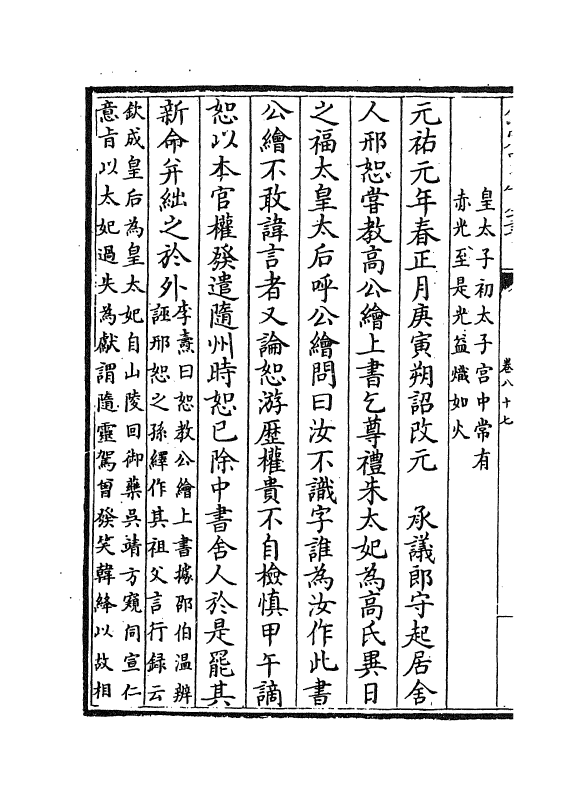 卷八十七
皇太子初太子宮中常有
赤光至是光益熾如火
元祐元年春正月庚寅朔詔改元　承議郎守起居舍
人邢恕嘗教高公繪上書乞尊禮朱太妃為高氏異日
之福太皇太后呼公繪問曰汝不識字誰為汝作此書
公繪不敢諱言者又論恕游歴權貴不自檢慎甲午謫
恕以本官權發遣隨州時恕已除中書舍人於是罷其
新命并絀之於外李燾曰恕教公繪上書據邵伯溫辨
誣邢恕之孫繹作其祖父言行録云
欽成皇后為皇太妃自山陵回御藥吳靖方窺伺宣仁
意旨以太妃過失為獻謂隨靈駕曾發笑韓絳以故相